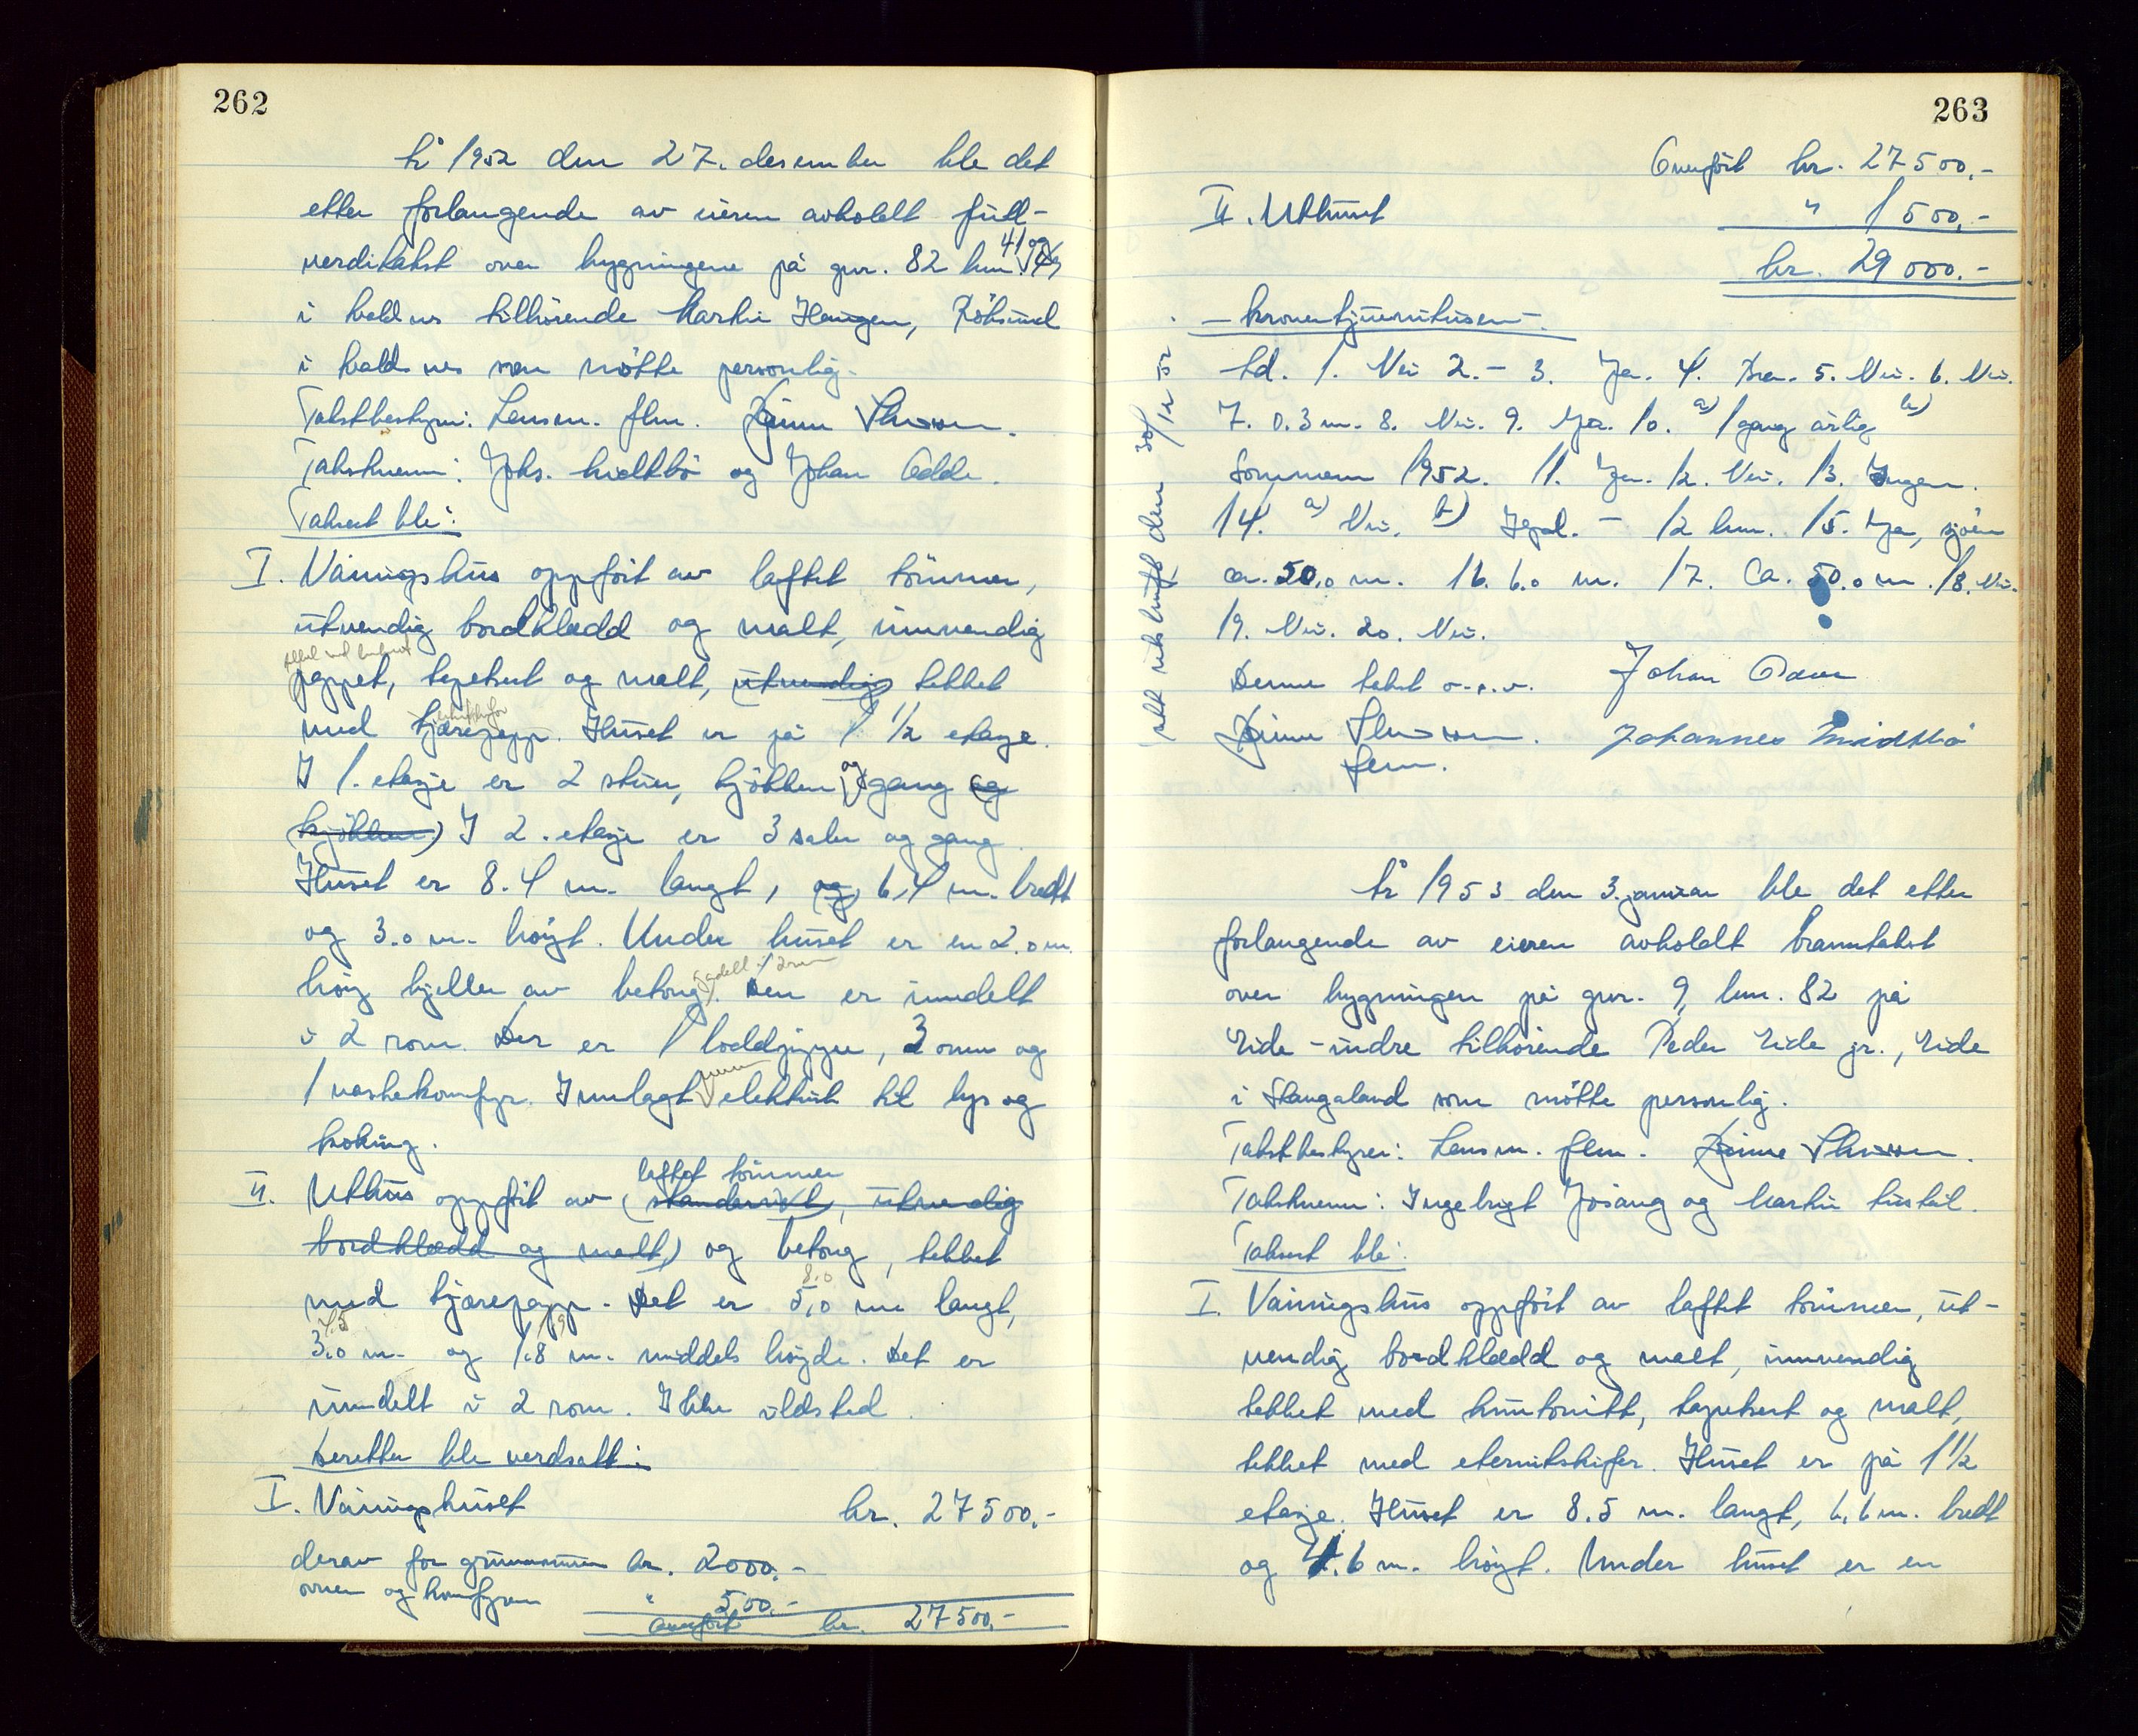 262
År 1952 den 27. desember ble det
etter forlangende av eieren avholdt full-
verditakst over bygningene på gnr. 82 bnr. 41 og
i Valdnes tilhørende Martin Haugen, Röksund
i Valdnes som møtte personlig.
Takstbestyrer: Lensm. flm.
Takstmenn: Johs. Midtbö og Johan Odde.
Taksert ble:
I. Våningshus oppfört av laftet tömmer,
utvendig bordklædd og malt, innvendig
pappet, tapetsert og malt, utvendig tekket
med tjærepapp. Huset er på 1 1/2 etasje.
I 1. etasje er 2 stuer, kjökken og gang og
kjökken) I 2. etasje er 3 saler og gang.
Huset er 8.4 m. langt, og 6.4 m. bredt
og 3.0 m. höyt. Under huset er en 2.0 m.
höy kjeller av betong. Den er inndelt
i 2 rom. Der er 1 loddpipe, 3 ovner og
1 vaskekomfyr. Innlagt elektrisk til lys og
koking.
laftet tömmer
II. Uthus oppfört av (standerverk, utvendig
bordklædd og malt) og betong, tekket
8.0
med tjærepapp. Det er 5,0 m langt,
4.5
3.0 m. og 1.8 m. middels höyde. Det er
inndelt i 2 rom. Ikke ildsted.
Deretter ble verdsatt:
I. Våningshuset kr. 27500.-
derav for grunnmuren kr. 2000.-
ovner og komfyren " 500.-
Overfört kr. 27500.-
263
Overfört kr. 27500.-
II. Uthuset " 1500.-
kr. 29000.-
- kronertjuenitusen -.
td. 1. Nei 2. - 3. Ja. 4. Bra. 5. Nei. 6. Nei.
7. 0.3 m. 8. Nei. 9. Ja. 10. a) 1 gang årlig b)
Sommeren 1952. 11. Ja. 12. Nei. 13. Ingen.
14. a) Nei. b) Hgd. - 12 km. 15. Ja, sjöen
ca. 50.0 m. 16. 6.0 m. 17. Ca. 50.0 m. 18. Nei.
19. Nei. 20. Nei.
Denne takst o.s.v.
Johan Odde
flm.
Johannes Midtbö
utskrift den 30/12 52
År 1953 den 3. januar ble det etter
forlangende av eieren avholdt branntakst
over bygningen på gnr. 9, bnr. 82 på
Eide-indre tilhørende Peder Eide jr., Eide
i Stangaland som møtte personlig.
Takstbestyrer: Lensm. flm.
Takstmenn: Ingebrigt Jösang og Martin
Taksert ble:
I. Våningshus oppfört av laftet tömmer, ut-
vendig bordklædd og malt, innvendig
tekket med huntonitt, tapetsert og malt,
tekket med eternitskifer. Huset er på 1 1/2
etasje. Huset er 8.5 m. langt, 6.6 m. bredt
og 4.6 m. höyt. Under huset er en